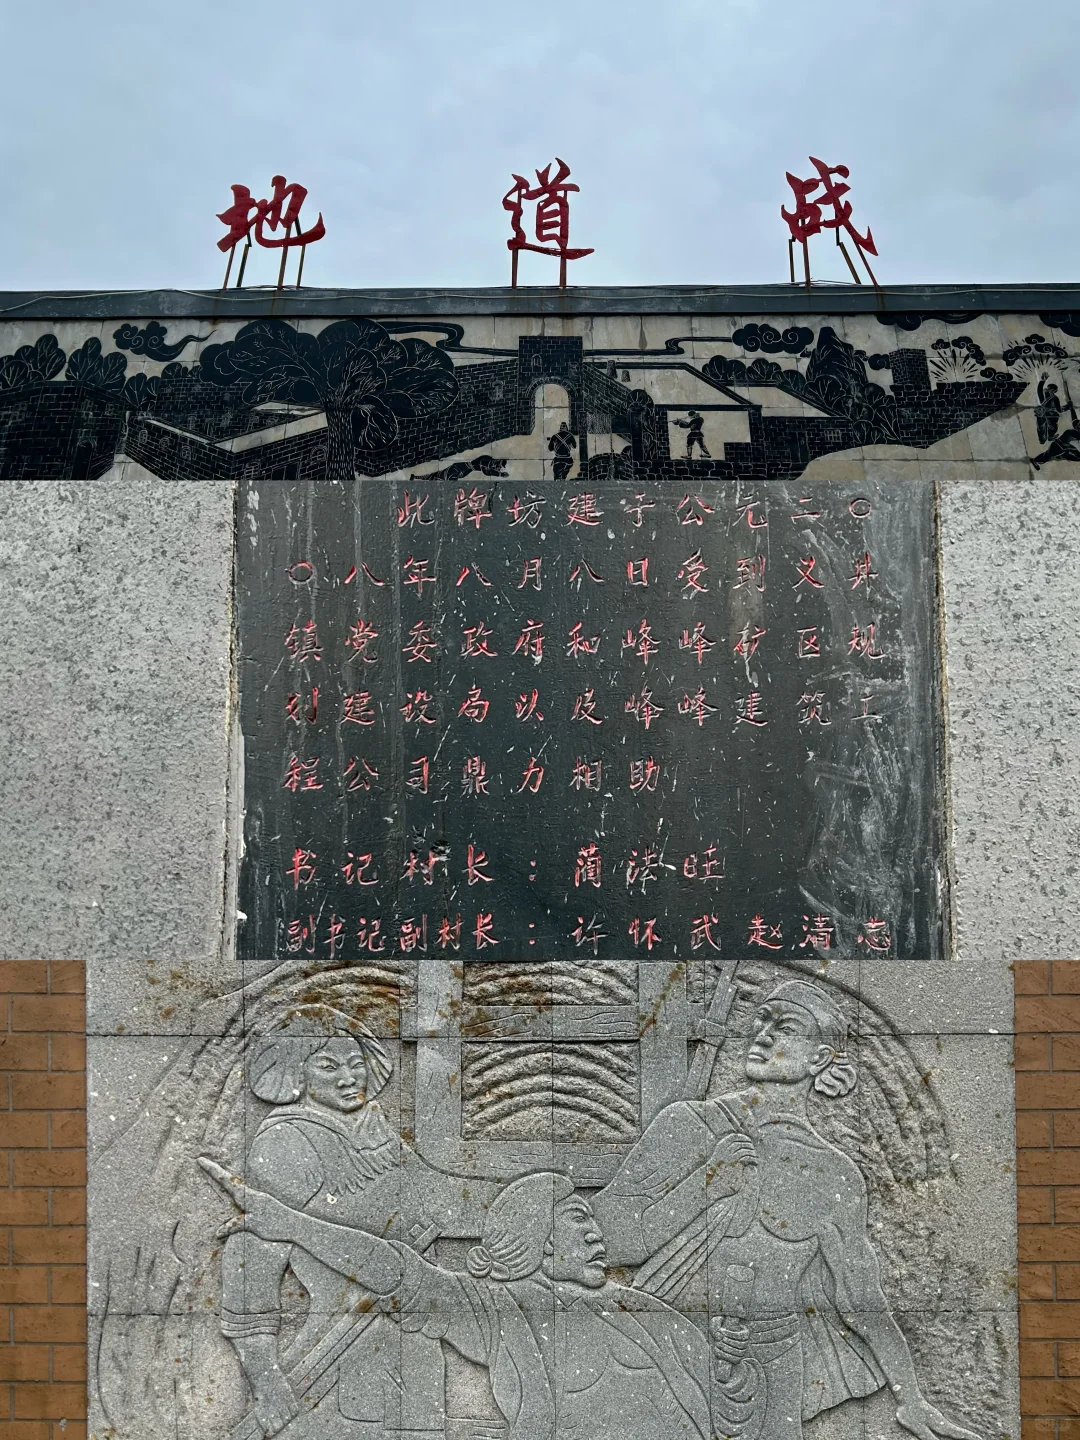 地道战
此牌坊建于公元二〇
〇八年八月八日受到义井
镇党委政府和峰峰矿区规
划建设局以及峰峰建筑工
程公司鼎力相助
书记村长：蔺法旺
副书记副村长：许怀武赵清志